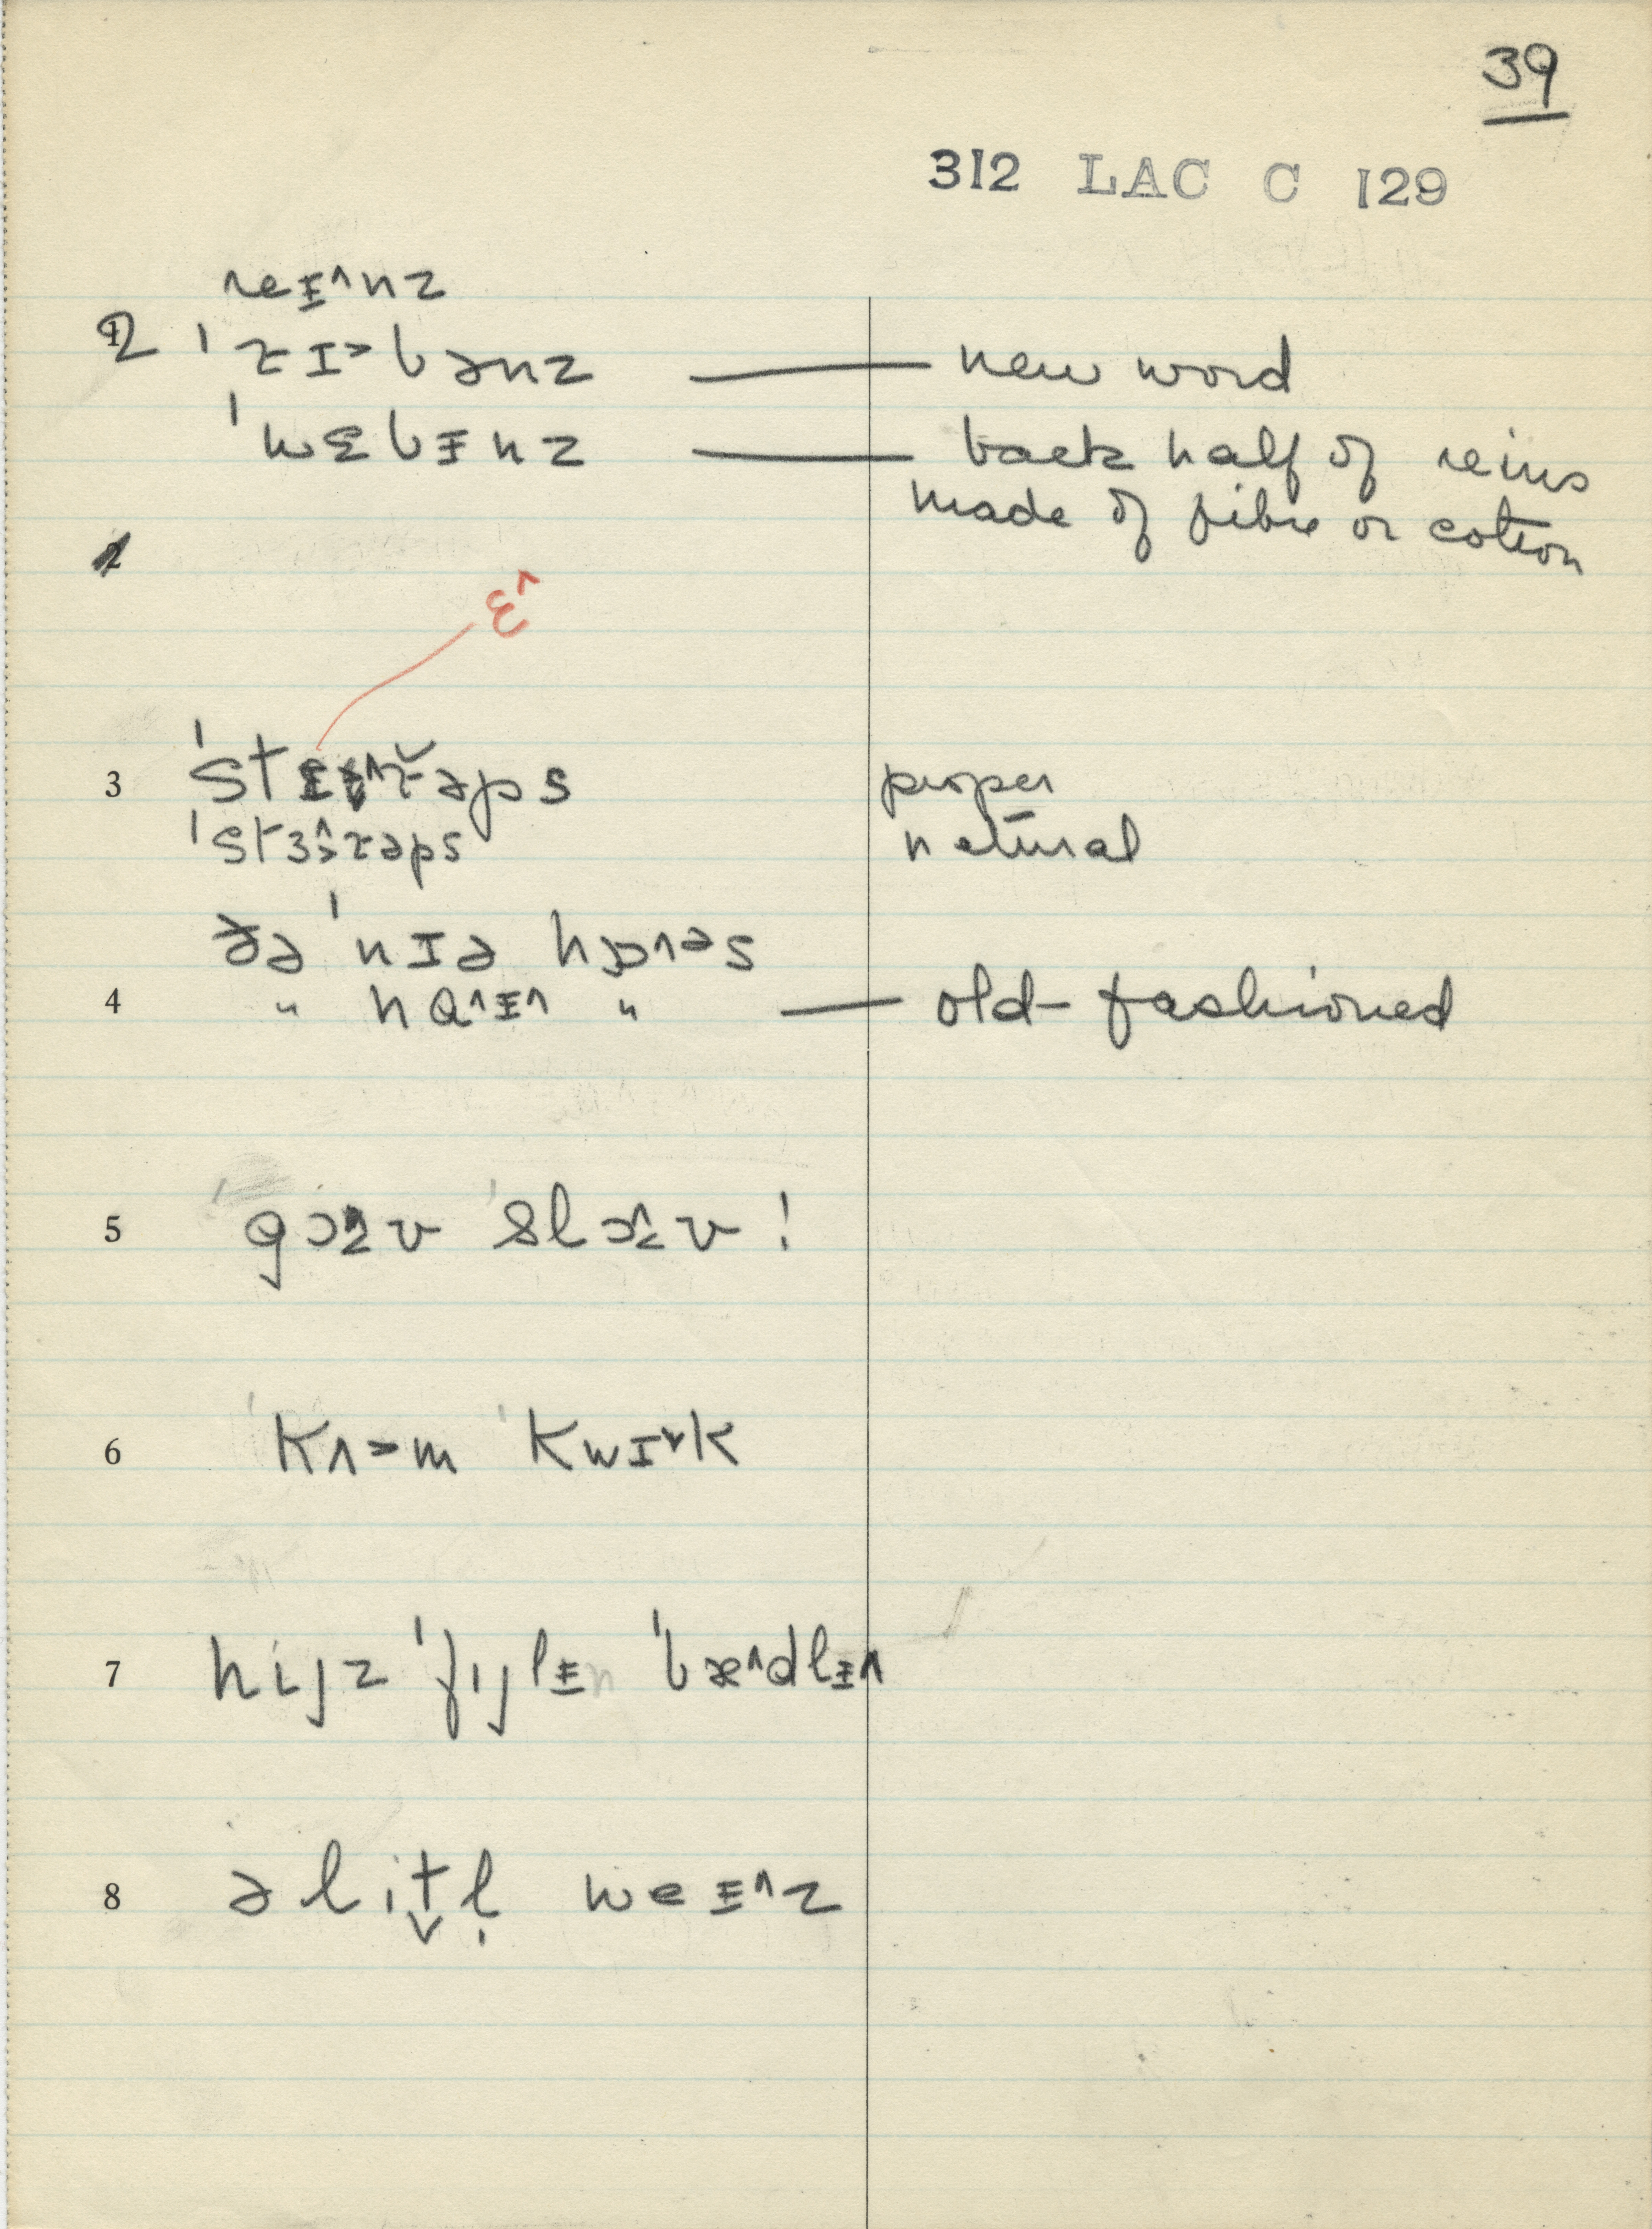 39
312 LAC C 129
reɪ̵^nz
2 ˈrɪ˃bənz — new word
ˈwɛbɪ̵nz — back half of reins
made of fibre or cotton
2
ɛ^
3 ˈst rəps proper
ˈstɜ˃^rəps natural
ðə ˈnɪə hɒʌəs
4 " hɑ^ɪ̵^ " — old-fashioned
5 v ˈsl v !
6 ˈkʌ˃m ˈkwɪ˅k
7 hijz ˈfijlɪ̵n ˈbæ^dlɪ̵^
8 ə lit̬l̩ weɪ̵^z